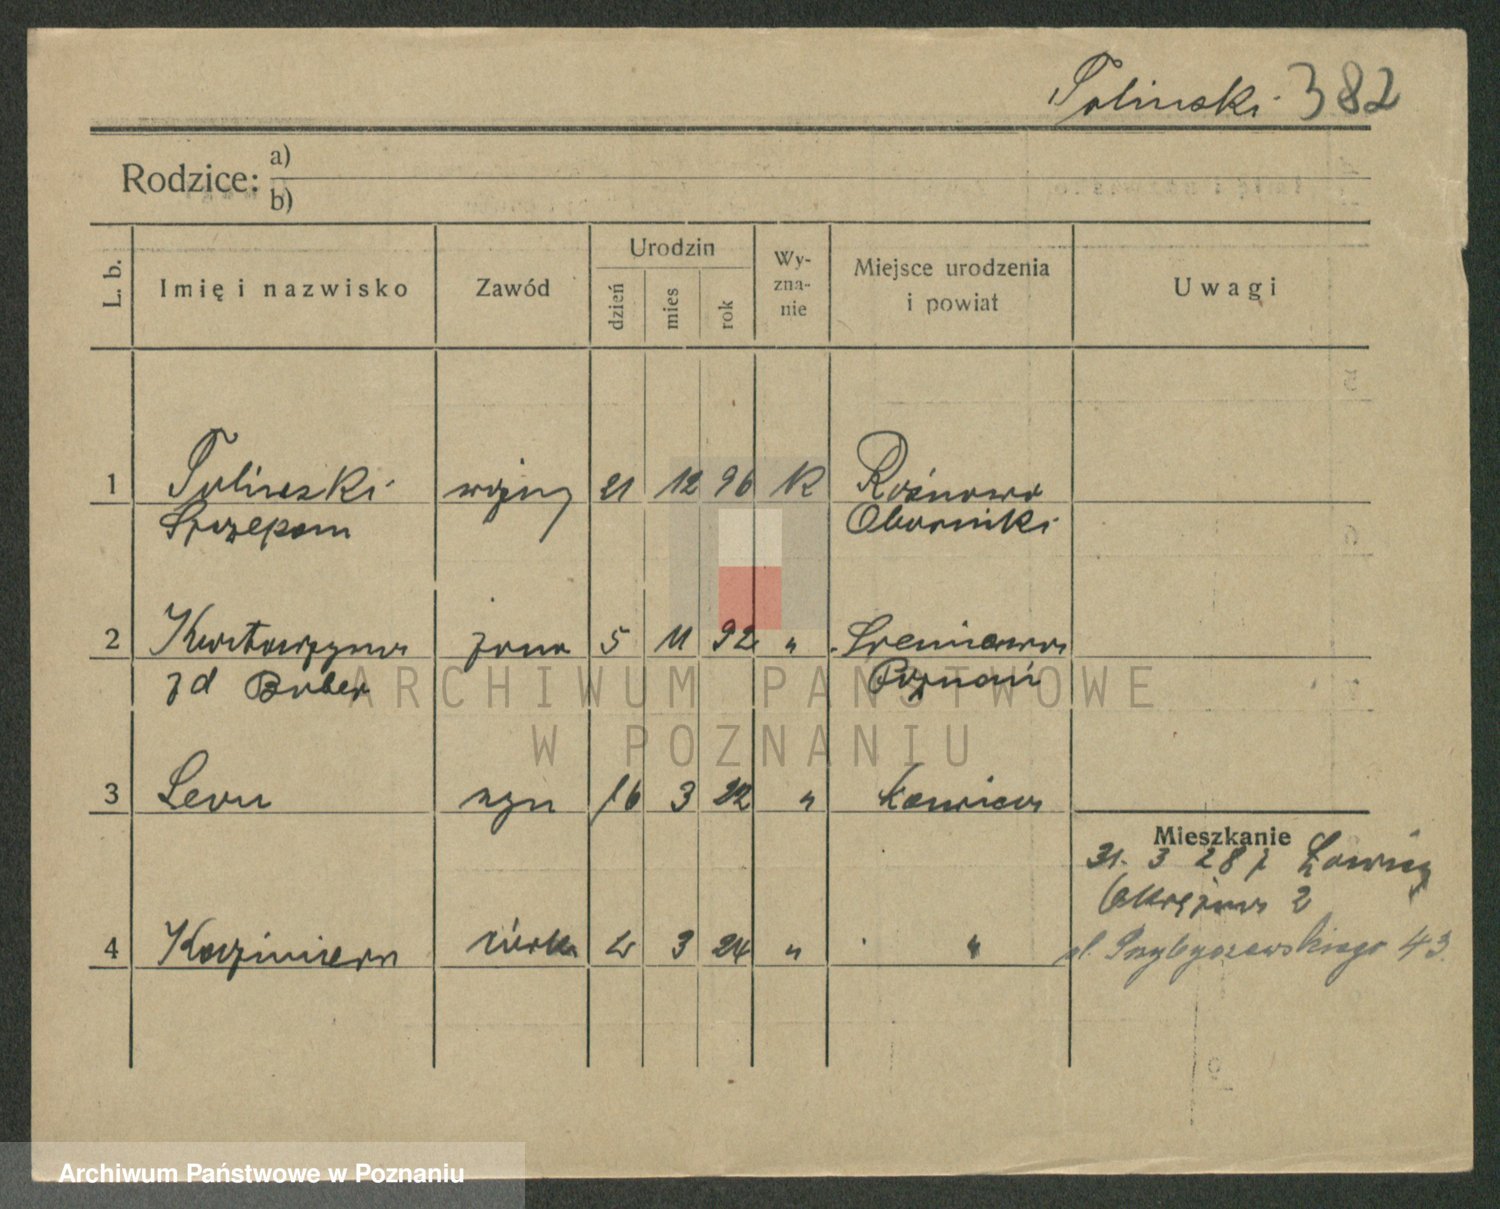 Polinski 382
Rodzice: a)
b)
L. b. Imię i nazwisko Zawód Urodzin dzień mies rok Wy-zna-nie Miejsce urodzenia i powiat Uwagi
1 Polinski 21 12 96 K Rożnowo
Szczepan Oborniki
2 Katarzyna żona 5 11 92 "
zd Bober Poznań
ARCHIWUM PAŃSTWOWE
W POZNANIU
3 Leon syn 16 3 22 " Ławica
Mieszkanie
31. 3 28 z Ławicy
Okrężna 2
4 Kazimiera córka 3 24 " " ul. Przybyszewskiego 43
Archiwum Państwowe w Poznaniu